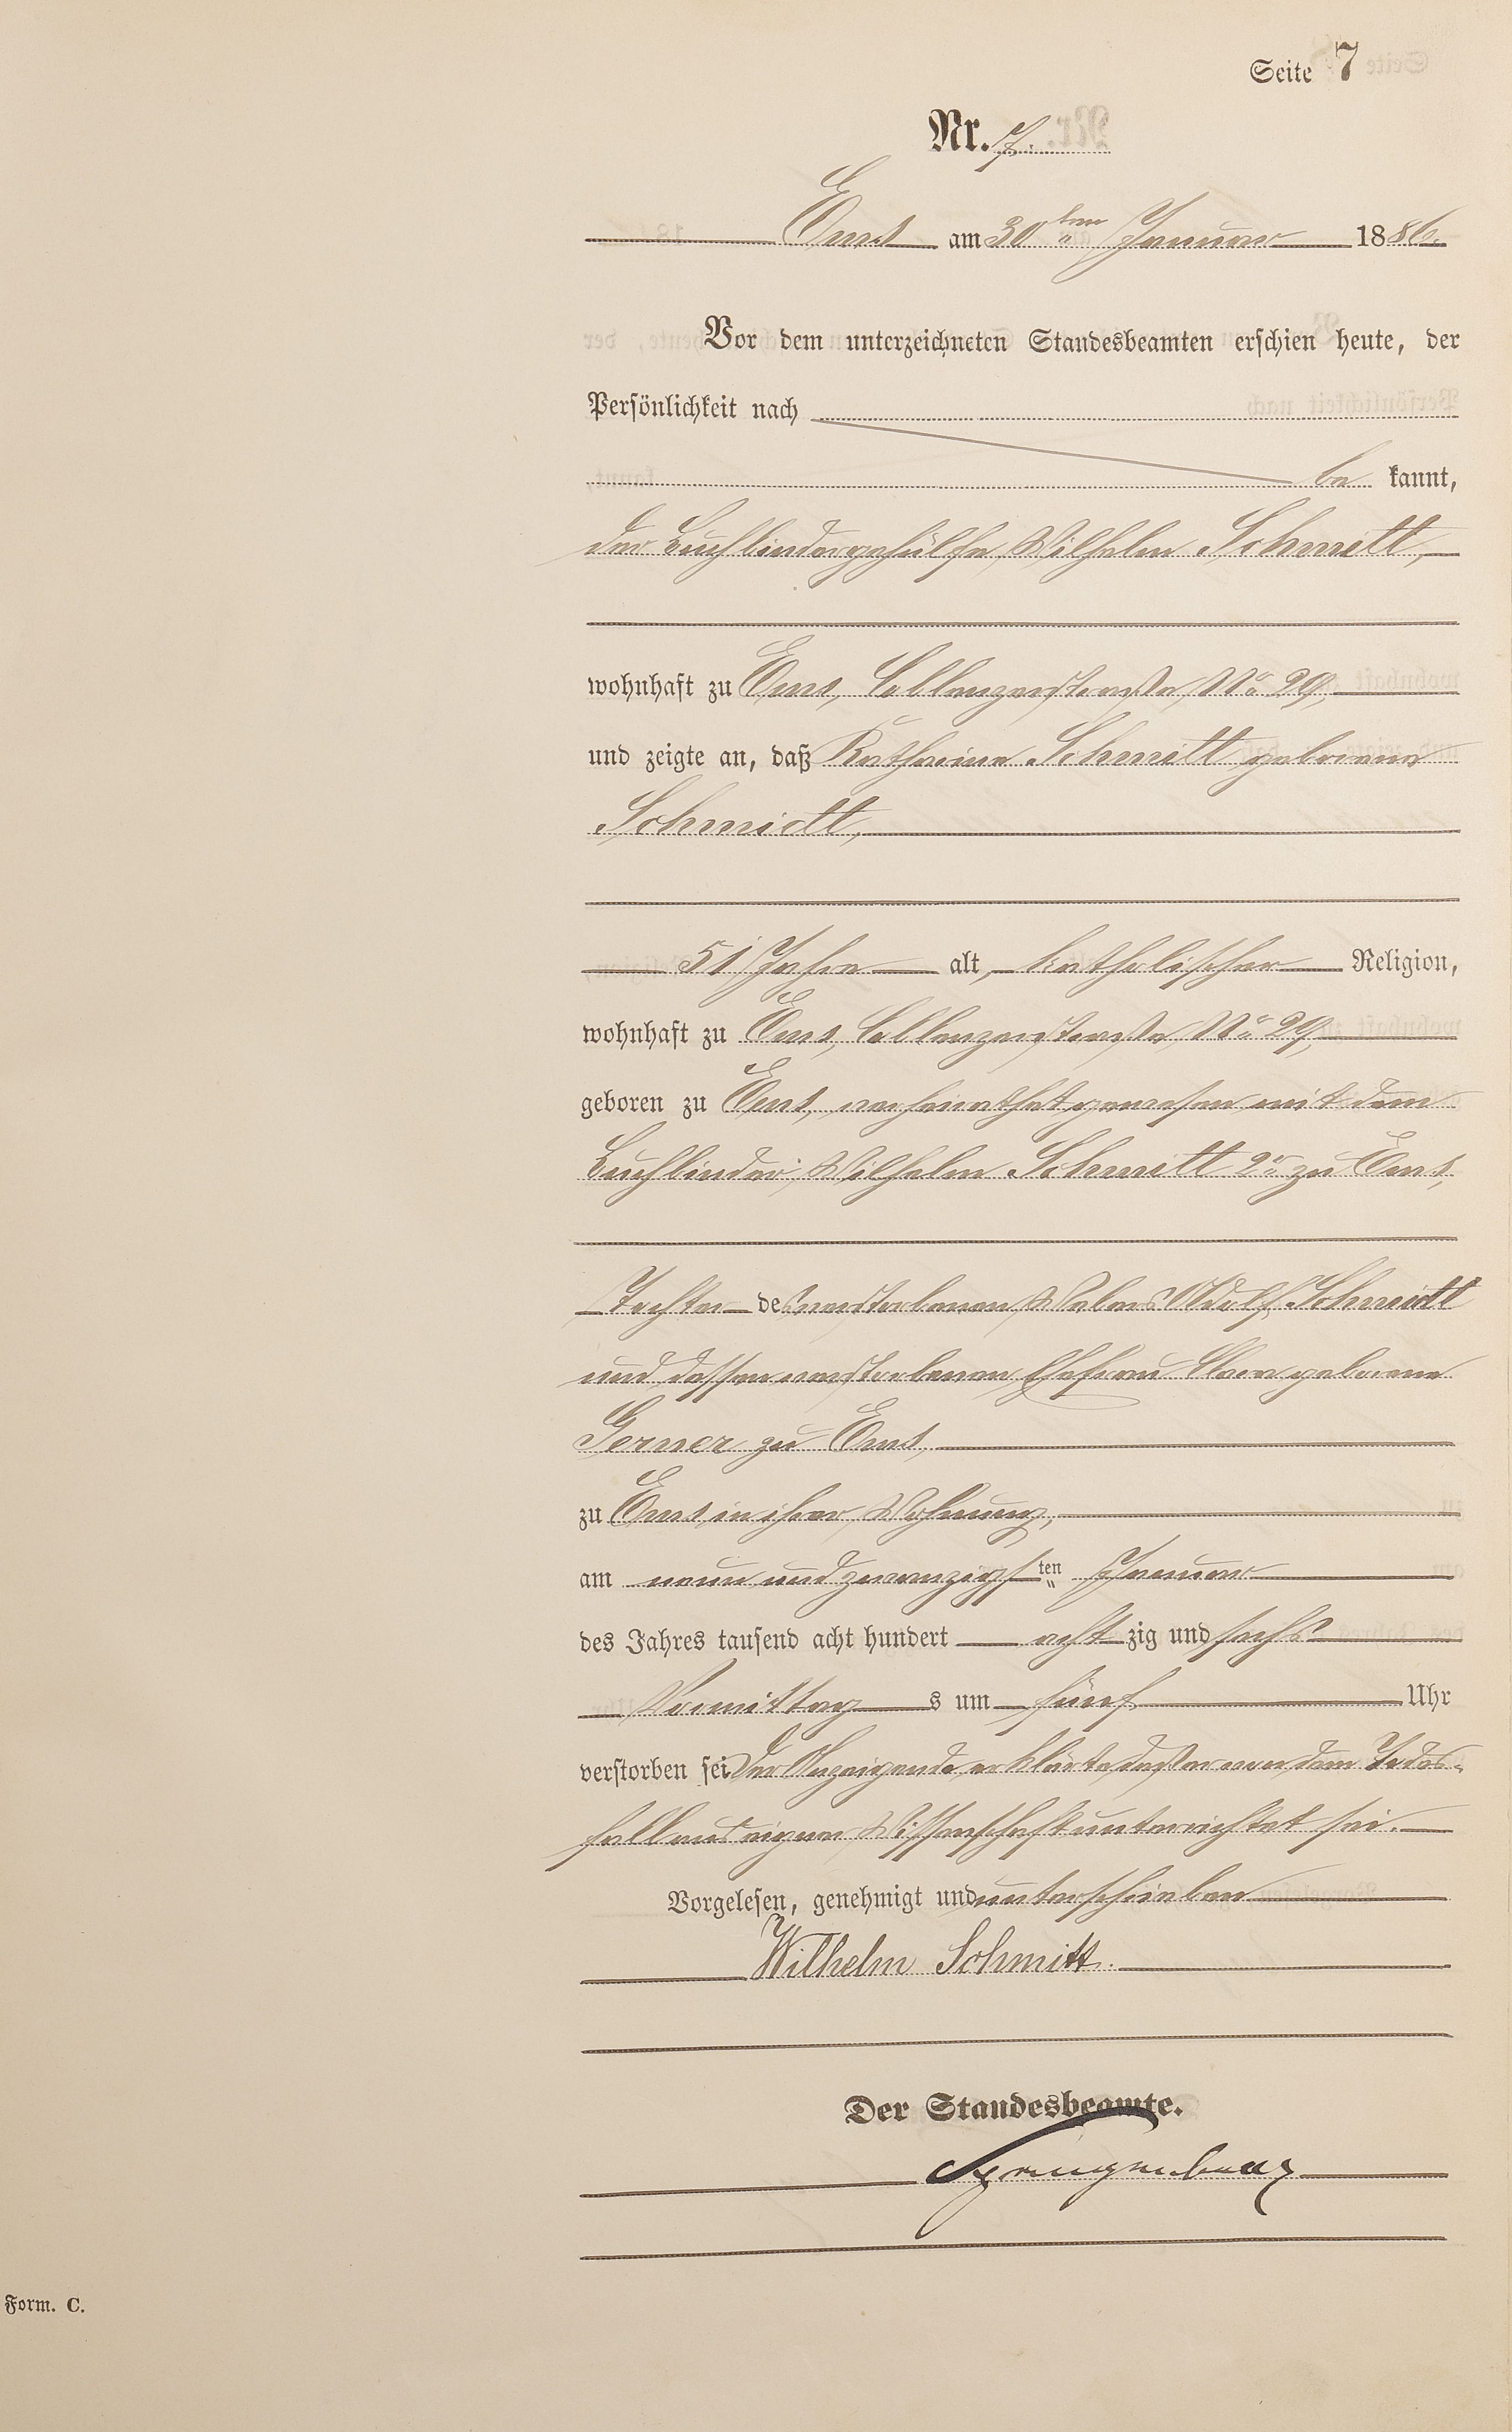 Seite 7
Nr. 7.
Ems am 30ten Januar 1886.
Vor dem unterzeichneten Standesbeamten erschien heute, der
Persönlichkeit nach
be kannt,
der Buchbindergehülfe Wilhelm Schmitt,
wohnhaft zu Ems, Coblenzerstraße, No 29,
und zeigte an, daß Katharina Schmitt geborene
Schmidt,
51 Jahre alt, katholischer Religion,
wohnhaft zu Ems, Coblenzerstraße, No 29,
geboren zu Ems, verheirathet gewesen mit dem
Buchbinder Wilhelm Schmitt 2r zu Ems,
Tochter des verstorbenen Malers Adolf Schmidt
und dessen verstorbenen Ehefrau Clara geborene
Gerner zu Ems,
zu Ems in ihrer Wohnung,
am neun und zwanzigsten Januar
des Jahres tausend acht hundert acht zig und sechs
Vormittag s um fünf Uhr
verstorben sei Der Anzeigende erklärte, daß er von dem Todes-
fall aus eigener Wissenschaft unterrichtet sei.
Vorgelesen, genehmigt und unterschrieben
Wilhelm Schmitt.
Der Standesbeamte.
Form. C.